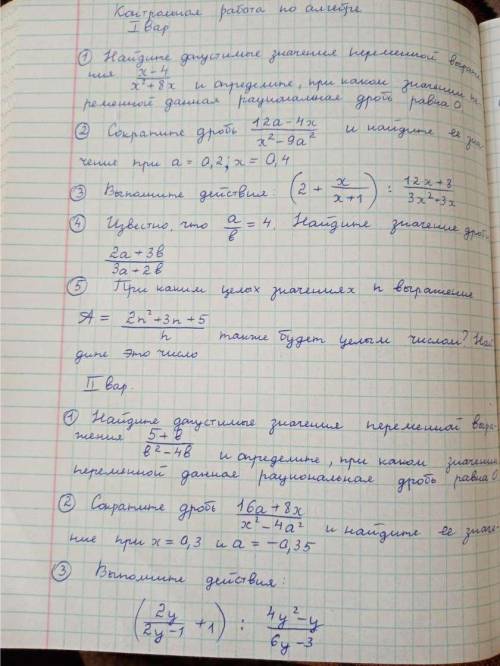 Контрольная работа по алгебре
I вар
① Найдите допустимые значения переменной выраже-
ния (x-4)/(x²+8x) и определите, при каком значении пе-
ременной данная рациональная дробь равна 0.
② Сократите дробь (12a-4x)/(x²-9a²) и найдите её зна-
чение при a = 0,2; x = 0,4
③ Выполните действия: (2 + x/(x+1)) : (12x+8)/(3x²+3x)
④ Известно, что a/b = 4. Найдите значение дроби
(2a+3b)/(3a+2b)
⑤ При каким целых значениях n выражение
A = (2n²+3n+5)/n также будет целым числом? Най
дите это число
II вар.
① Найдите допустимые значения переменной выра-
жения (5+b)/(b²-4b) и определите, при каком значении
переменной данная рациональная дробь равна 0
② Сократите дробь (16a+8x)/(x²-4a²) и найдите её значе-
ние при x = 0,3 и a = -0,35
③ Выполните действия:
(2y/(2y-1) + 1) : (4y²-y)/(6y-3)